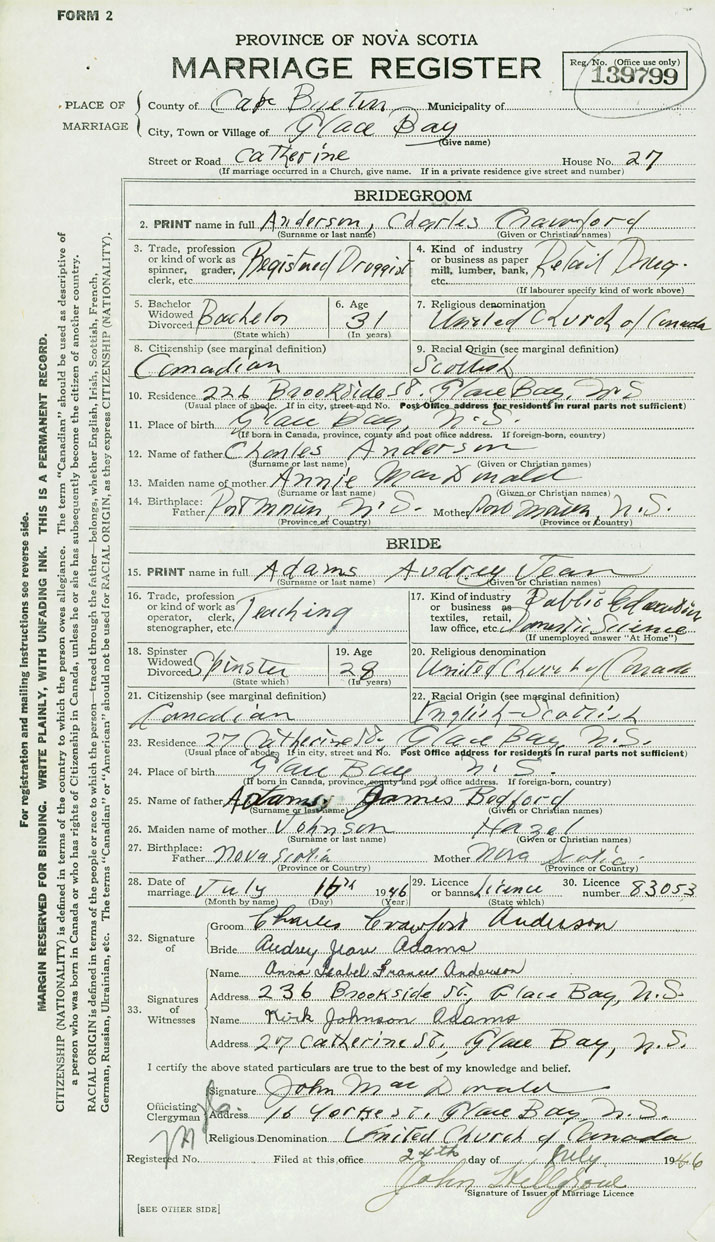 FORM 2
PROVINCE OF NOVA SCOTIA
MARRIAGE REGISTER
Reg. No. (Office use only)
139799
PLACE OF MARRIAGE
County of Cape Breton Municipality of
City, Town or Village of Glace Bay
(Give name)
Street or Road Catherine House No. 27
(If marriage occurred in a Church, give name. If in a private residence give street and number)
BRIDEGROOM
2. PRINT name in full Anderson, Charles Crawford
(Surname or last name) (Given or Christian names)
3. Trade, profession or kind of work as spinner, grader, clerk, etc. Registered Druggist
4. Kind of industry or business as paper mill, lumber, bank, etc. Retail Drug.
(If labourer specify kind of work above)
5. Bachelor Widowed Divorced Bachelor
(State which)
6. Age 31
(In years)
7. Religious denomination
United Church of Canada
8. Citizenship (see marginal definition)
Canadian
9. Racial Origin (see marginal definition)
Scottish
10. Residence 226 Brookside St. Glace Bay, N.S
(Usual place of abode. If in city, street and No. Post Office address for residents in rural parts not sufficient)
11. Place of birth Glace Bay, N.S.
(If born in Canada, province, county and post office address. If foreign-born, country)
12. Name of father Charles Anderson
(Surname or last name) (Given or Christian names)
13. Maiden name of mother Annie MacDonald
(Surname or last name) (Given or Christian names)
14. Birthplace: Father Port Morien, N.S. Mother Port Morien, N.S.
(Province or Country) (Province or Country)
BRIDE
15. PRINT name in full Adams Audrey Jean
(Surname or last name) (Given or Christian names)
16. Trade, profession or kind of work as operator, clerk, stenographer, etc. Teaching
17. Kind of industry or business as textiles, retail, law office, etc. Public Education Domestic Science
(If unemployed answer "At Home")
18. Spinster Widowed Divorced Spinster
(State which)
19. Age 28
(In years)
20. Religious denomination
United Church of Canada
21. Citizenship (see marginal definition)
Canadian
22. Racial Origin (see marginal definition)
English-Scottish
23. Residence 27 Catherine St. Glace Bay, N.S.
(Usual place of abode. If in city, street and No. Post Office address for residents in rural parts not sufficient)
24. Place of birth Glace Bay N.S.
(If born in Canada, province, county and post office address. If foreign-born, country)
25. Name of father Adams, James Bedford
(Surname or last name) (Given or Christian names)
26. Maiden name of mother Johnson Hazel
(Surname or last name) (Given or Christian names)
27. Birthplace: Father Nova Scotia Mother Nova Scotia
(Province or Country) (Province or Country)
28. Date of marriage July 1946
(Month by name) (Day) (Year)
29. Licence or banns Licence
(State which)
30. Licence number 83053
32. Signature of
Groom Charles Crawford Anderson
Bride Audrey Jean Adams
33. Signatures of Witnesses
Name Anna Isabel Frances Anderson
Address 236 Brookside St., Glace Bay, N.S.
Name Kirk Johnson Adams
Address 27 Catherine St., Glace Bay, N.S.
I certify the above stated particulars are true to the best of my knowledge and belief.
Officiating Clergyman
Signature John MacDonald
Address 16 Yorke St. Glace Bay, N.S.
Religious Denomination United Church of Canada
Registered No. Filed at this office 24th day of July 1946
John
Signature of Issuer of Marriage Licence
[SEE OTHER SIDE]
For registration and mailing instructions see reverse side.
MARGIN RESERVED FOR BINDING. WRITE PLAINLY, WITH UNFADING INK. THIS IS A PERMANENT RECORD.
CITIZENSHIP (NATIONALITY) is defined in terms of the country to which the person owes allegiance. The term "Canadian" should be used as descriptive of
a person who was born in Canada or who has rights of Citizenship in Canada, unless he or she has subsequently become the citizen of another country.
RACIAL ORIGIN is defined in terms of the people or race to which the person—traced through the father—belongs, whether English, Irish, Scottish, French,
German, Russian, Ukrainian, etc. The terms "Canadian" or "American" should not be used for RACIAL ORIGIN, as they express CITIZENSHIP (NATIONALITY).